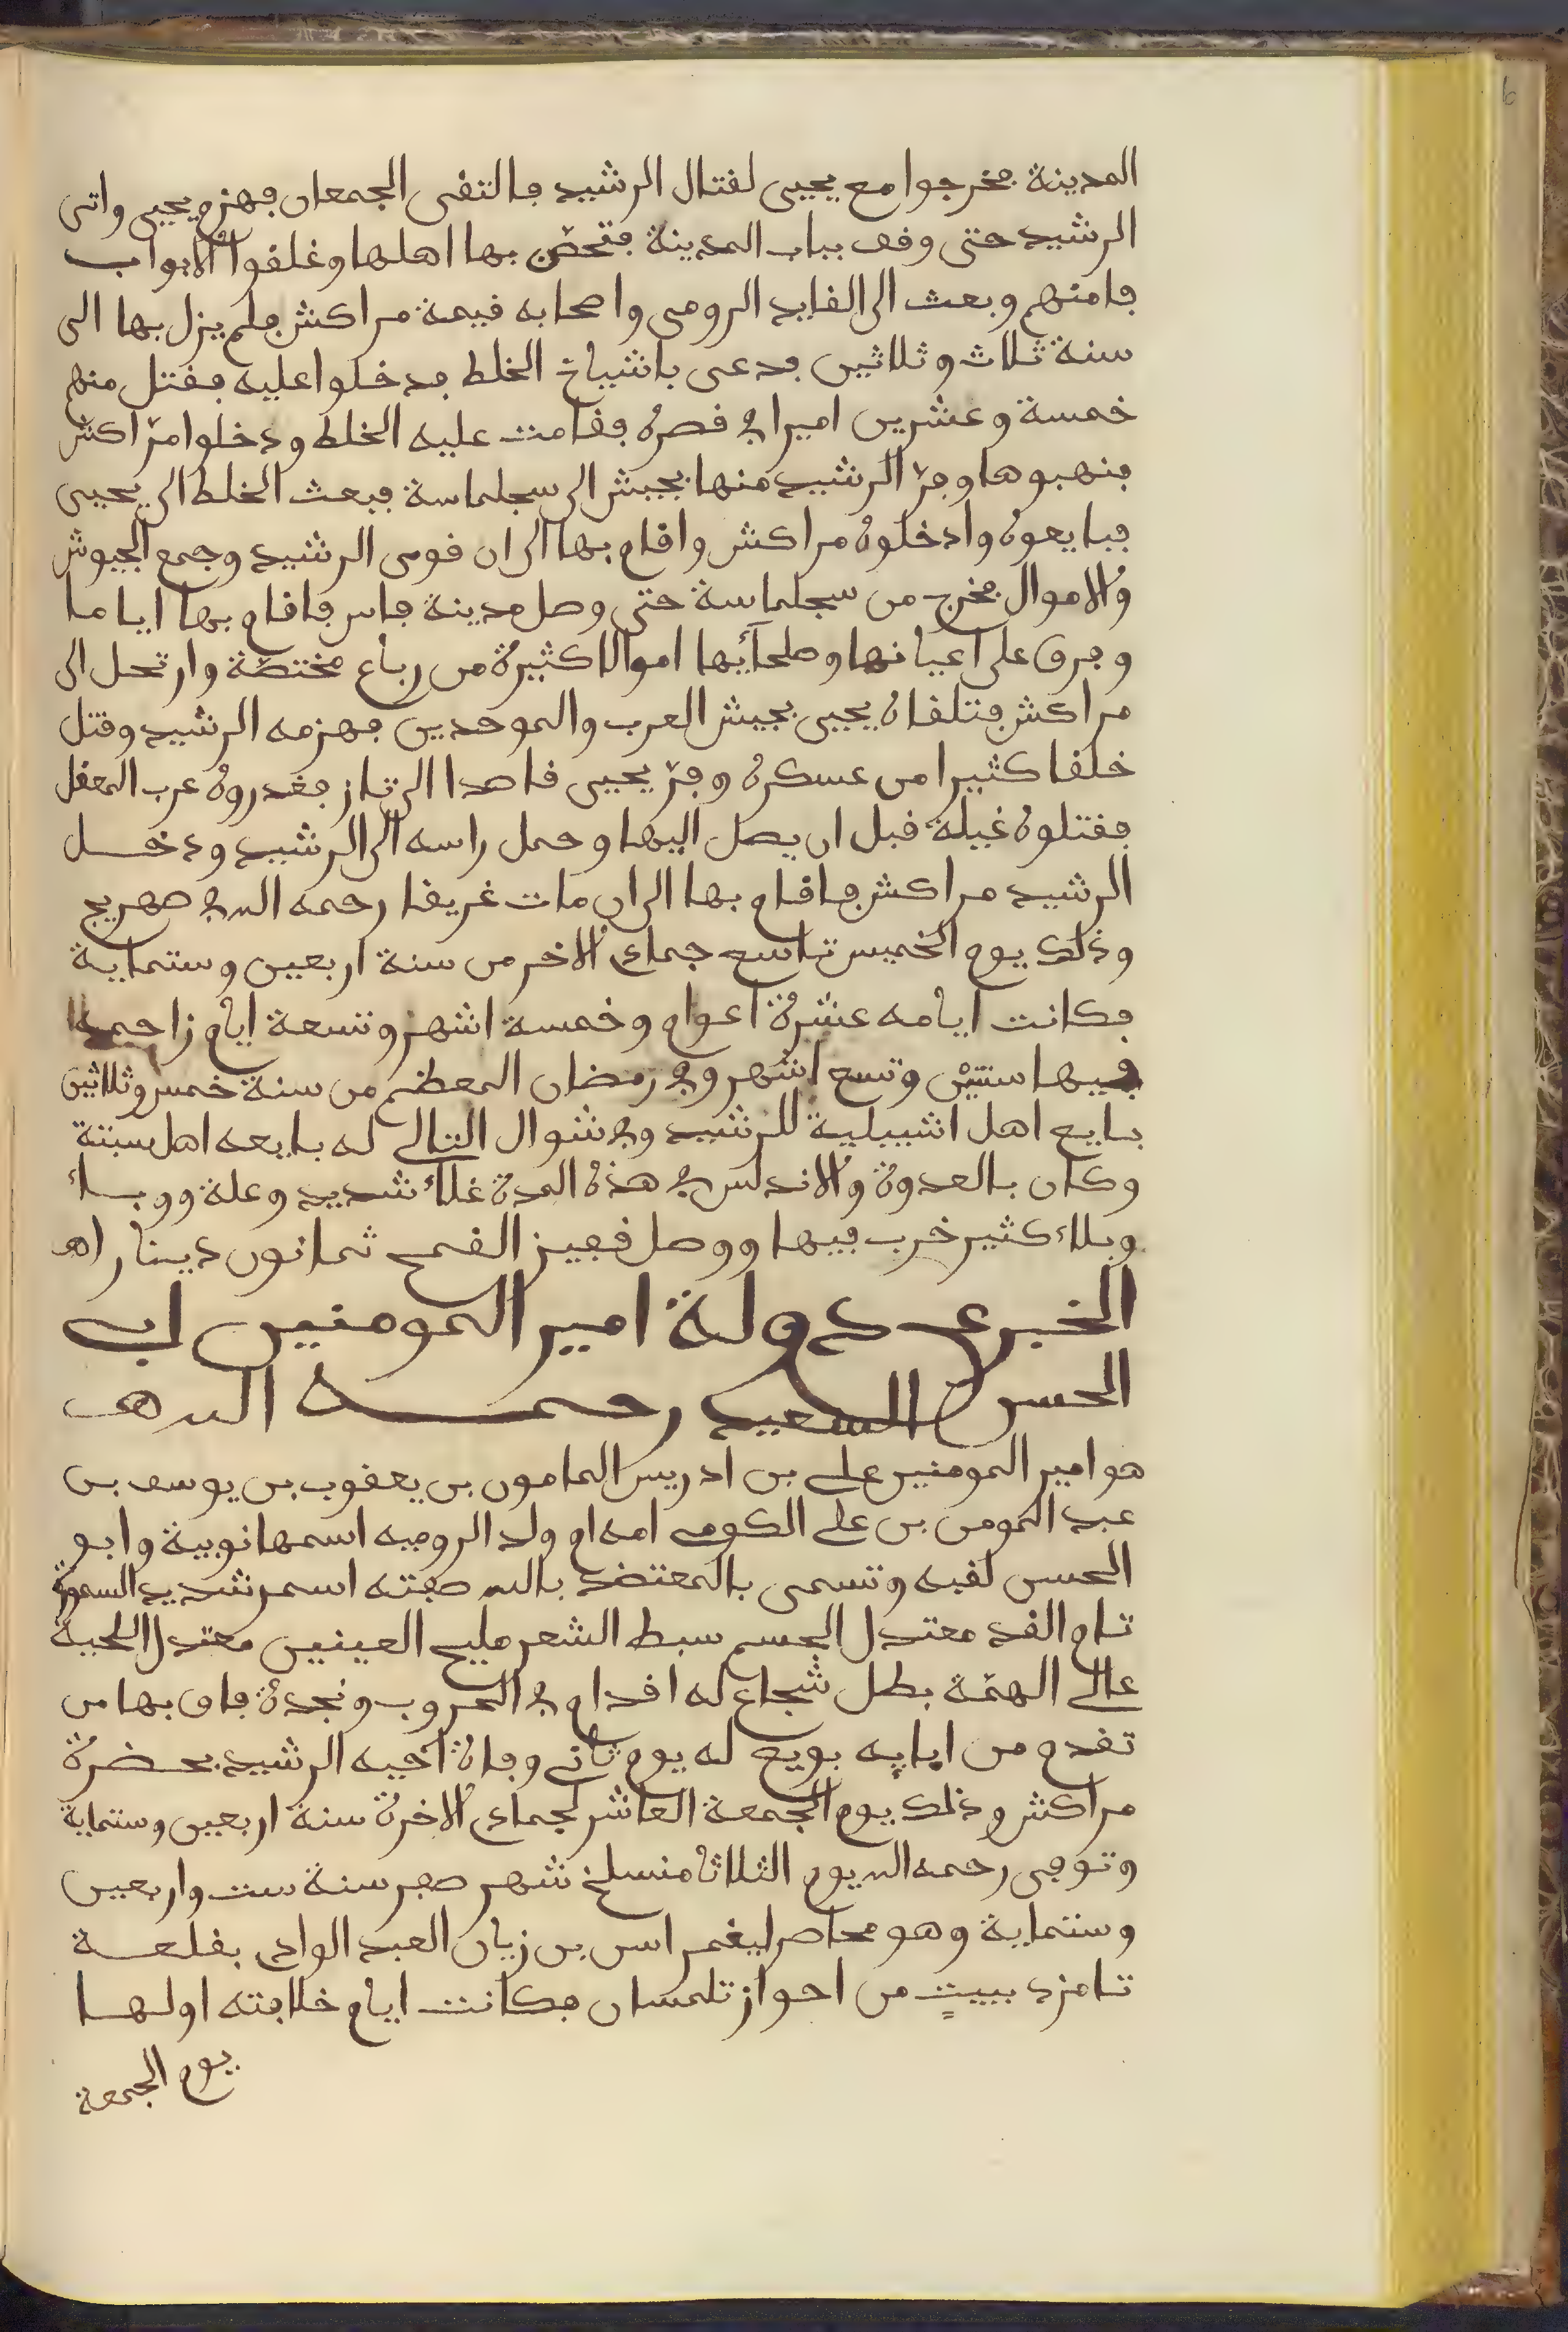 المدينة فخرجوا مع يحيى لقتال الرشيد فالتقى الجمعان فهزم يحيى واتى
الرشيد حتى وقف بباب المدينة فتحصّن بها اهلها وغلقوا الابواب
فامنهم وبعث الى القايد الرومى واصحابه قيمة مراكش فلم يزل بها الى
سنة ثلاث وثلاثين فدعى باشياخ الخلط فدخلوا عليه فقتل منهم
خمسة وعشرين اميرا في قصره فقامت عليه الخلط ودخلوا مرّاكش
فنهبوها وفرّ الرشيد منها بجيش الى سجلماسة فبعث الخلط الى يحيى
فبايعوه وادخلوه مراكش واقام بها الى ان قوى الرشيد وجمع الجيوش
والاموال فخرج من سجلماسة حتى وصل مدينة فاس فاقام بها اياما
وفرق على اعيانها وصلحآئها اموالا كثيرة من رباع مختصّة وارتحل الى
مراكش فتلقاه يحيى بجيش العرب والموحدين فهزمه الرشيد وقتل
خلقا كثيرا من عسكره وفرّ يحيى قاصدا الى تاز فغدروه عرب المعقل
فقتلوه غيلة قبل ان يصل اليها وحمل راسه الى الرشيد ودخل
الرشيد مراكش فاقام بها الى ان مات غريقا رحمه الله في صهريج
وذلك يوم الخميس تاسع جمادى الاخر من سنة اربعين وستماية
فكانت ايامه عشرة اعوام وخمسة اشهر وتسعة ايام زاحمه
فيها سنتين وتسع اشهر وفي رمضان المعظم من سنة خمس وثلاثين
بايع اهل اشبيلية للرشيد وفي شوال التالى له بايعه اهل سبتة
وكان بالعدوة والاندلس في هذه المدة غلاء شديد وعلة ووباء
وبلاء كثير خرب فيها ووصل قفيز القمح ثمانون دينارا هـ
الخبر عن دولة امير المومنين ابى
الحسن السعيد رحمه الله هـ
هو امير المومنين على بن ادريس المامون بن يعقوب بن يوسف بن
عبد المومن بن على الكومى امه ام ولد الروميه اسمها نوبية وابو
الحسن لقبه وتسمى بالمعتضد بالله صفته اسمر شديد السمرة
تام القد معتدل الجسم سبط الشعر مليح العينين معتدل اللحية
عالى الهمّة بطل شجاع له اقدام في الحروب ونجدة فاق بها من
تقدم من ابايه بويع له يوم ثانى وفاة اخيه الرشيد بحضرة
مراكش وذلك يوم الجمعة العاشر لجمادى الاخرة سنة اربعين وستماية
وتوفى رحمه الله يوم الثلاثا منسلخ شهر صفر سنة ست واربعين
وستماية وهو محاصر ليغمراسن بن زيان العبد الوادى بقلعة
تامزدبيت من احواز تلمسان فكانت ايام خلافته اولها
يوم الجمعة